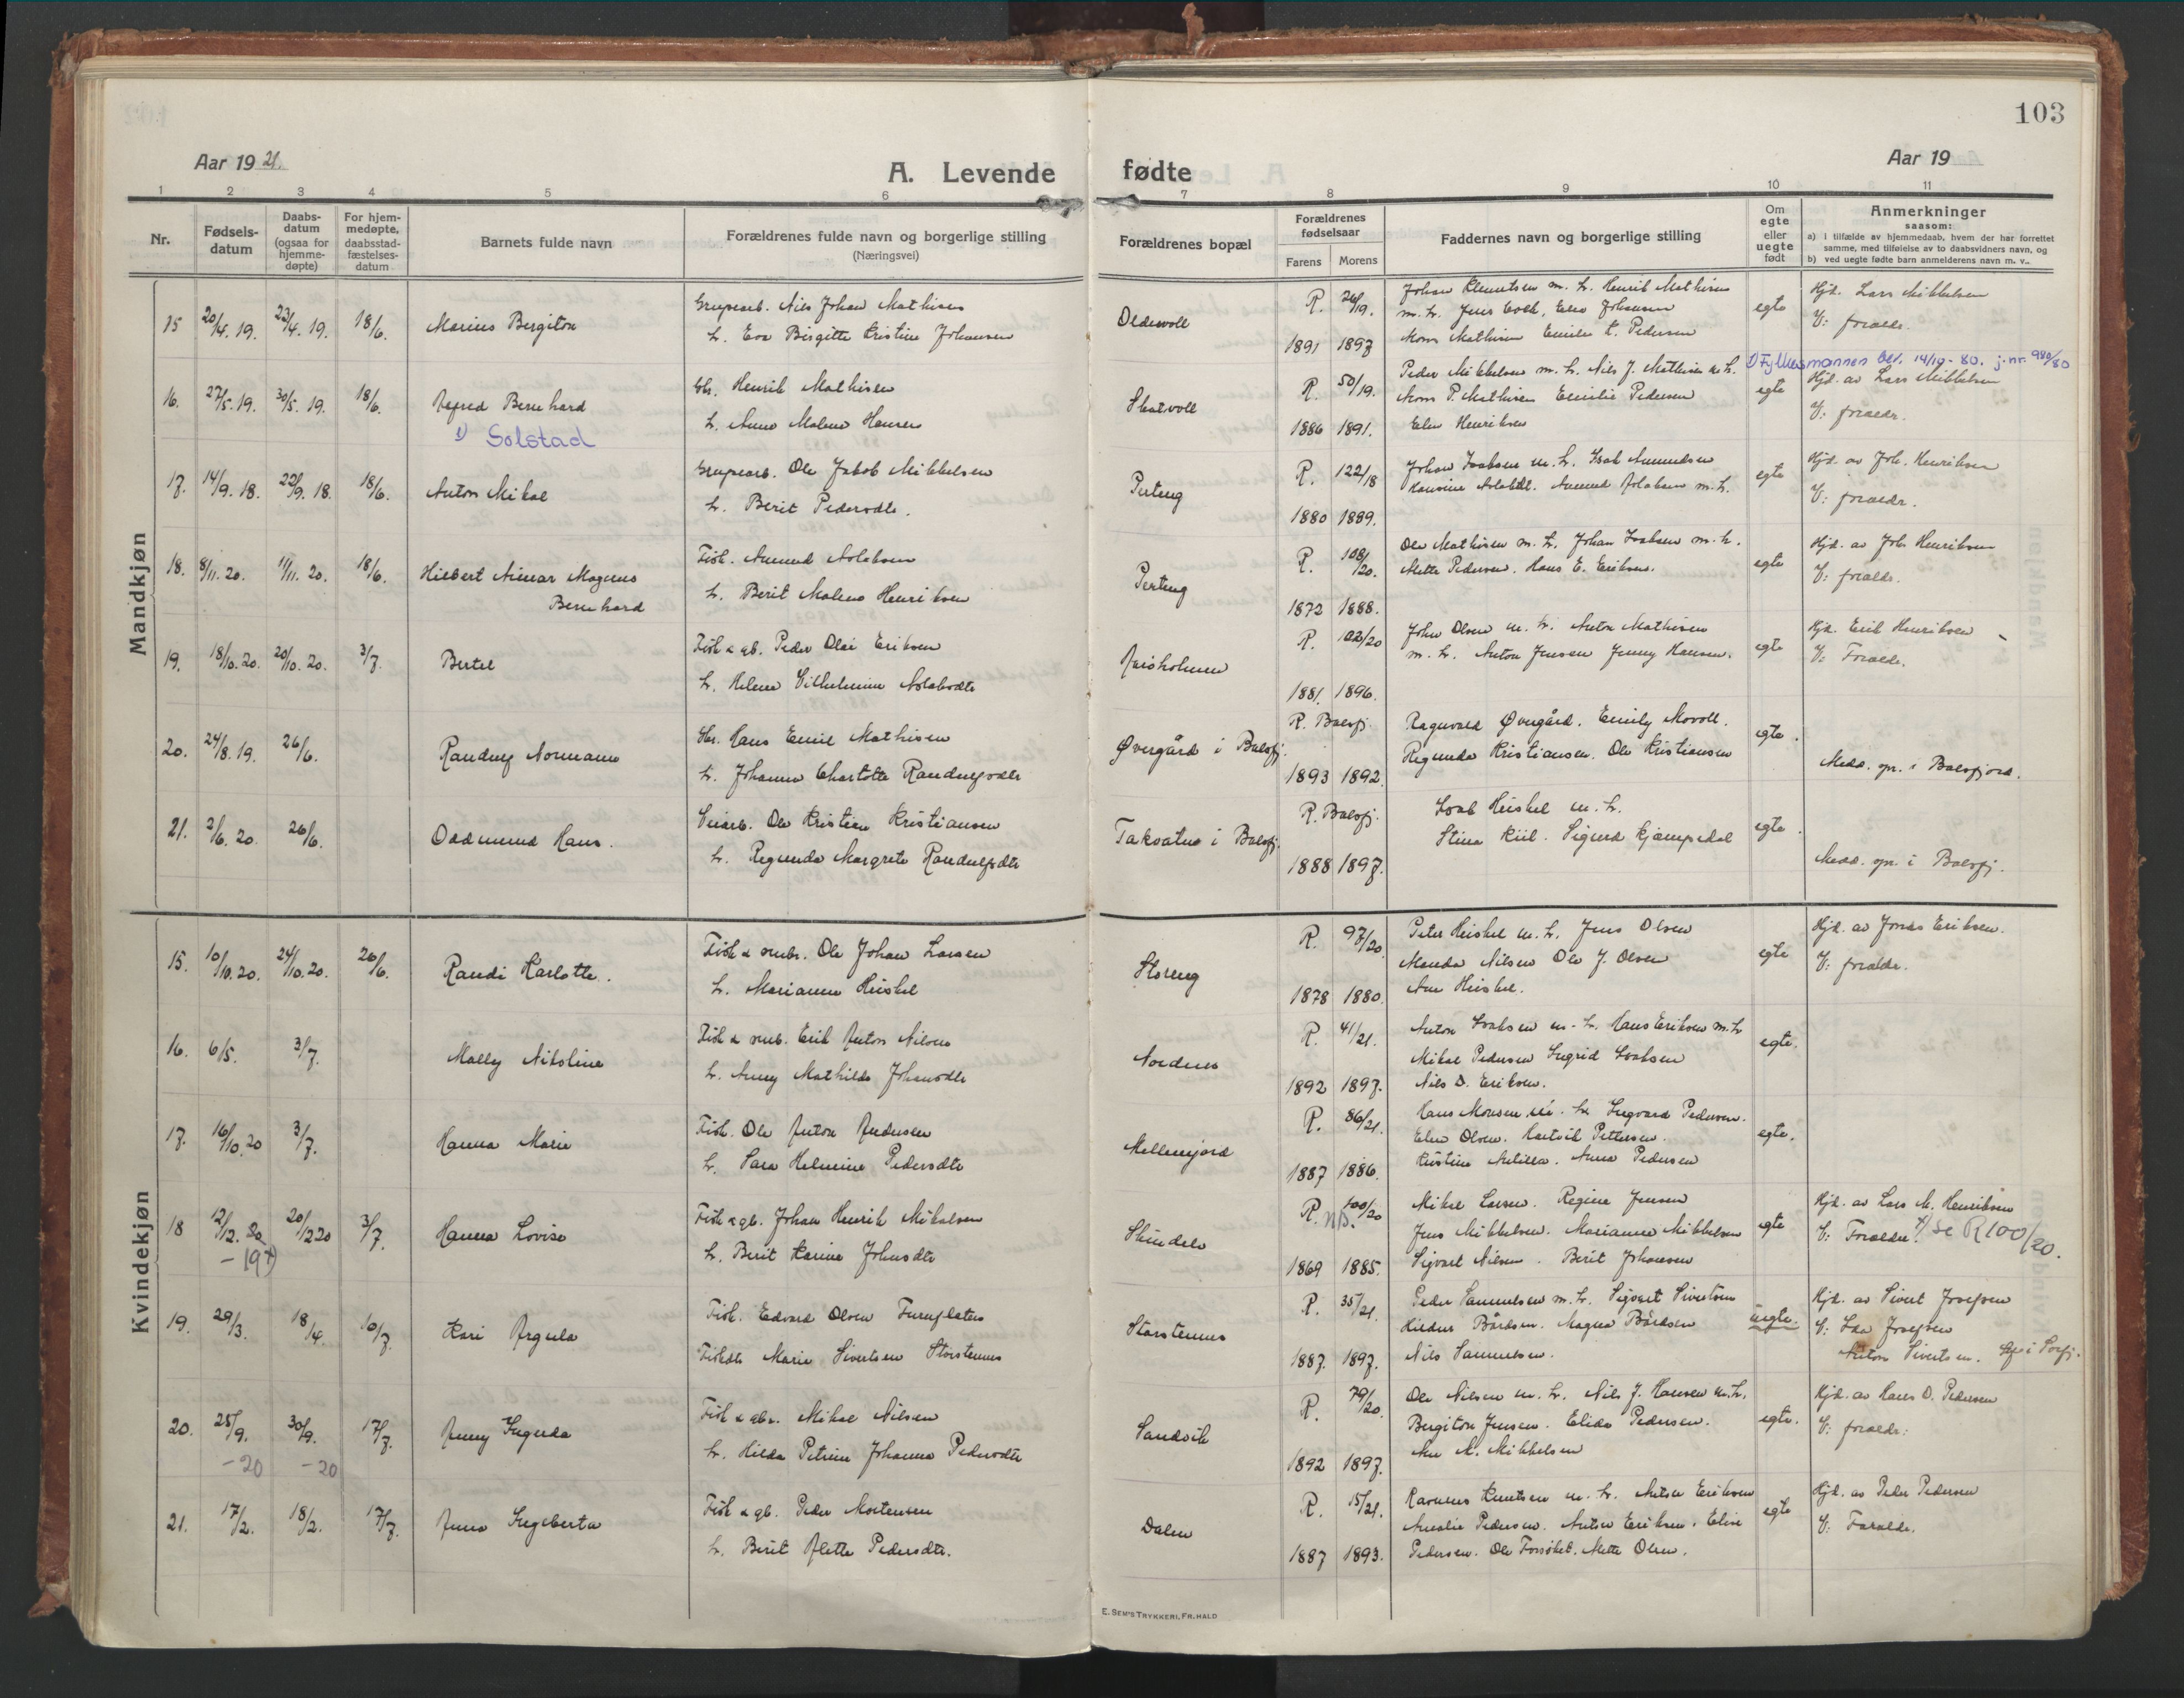 103
Aar 19 21.
A. Levende fødte
Aar 19
1 2 3 4 5 6 7 8 9 10 11
Nr.
Fødsels-
datum
Daabs-
datum
(ogsaa for
hjemme-
døpte)
For hjem-
medøpte,
daabsstad-
fæstelses-
datum
Barnets fulde navn
Forældrenes fulde navn og borgerlige stilling
(Næringsvei)
Forældrenes bopæl
Forældrenes
fødselsaar
Farens Morens
Faddernes navn og borgerlige stilling
Om
egte
eller
uegte
født
Anmerkninger
saasom:
a) i tilfælde av hjemmedaab, hvem der har forrettet
samme, med tilføielse av to daabsvidners navn, og
b) ved uegte fødte barn anmelderens navn m. v.
Mandkjøn
15 20/4. 19. 23/4. 19. 18/6. Marius Bergiton
Grupearb. Nils Johan Mathisen
h. Eva Birgitte Kristine Johansen
Oldervoll
R. 26/19.
1891 1897
Johan Klemetsen m. h. Henrik Mathisen
m. h. Jens Johansen
Mons Mathisen Emilie K. Pedersen
egte
Hjd. Lars Mikkelsen
V: forældr.
16. 27/5. 19. 30/5. 19. 18/6. Alfred Bernhard
1) Solstad
Gbr. Henrik Mathisen
h. Anne Malene Hansen
Skatvoll
R. 50/19.
1886 1891.
Peder Mikkelsen m. h. Nils J. Mathisen m. h.
Mons P. Mathisen Emilie Pedersen
Elen Henriksen
egte
1) Fylkesmannen bev. 14/10-80. j.nr. 980/80
Hjd. av Lars Mikkelsen
V: forældr.
17. 14/9. 18. 22/9. 18. 18/6. Anton Mikal
Grupearb. Ole Jakob Mikkelsen
h. Berit Pedersdtr.
Perteng
R. 122/18
1880 1889.
Johan Isaksen m. h. Isak Amundsen
Amund Aslaksen m. h.
egte
Hjd. av Joh. Henriksen
V: forældr.
18. 8/11. 20. 11/11. 20. 18/6. Hilbert Aimar Magnus
Bernhard
Fisk. Amund Aslaksen
h. Berit Malene Henriksen
Perteng
R. 108/20.
1872 1888.
Ole Mathisen m. h. Johan Isaksen m. h.
Mette Pedersen. Hans E. Eriksen.
egte
Hjd. av Joh. Henriksen
V: forældr.
19. 18/10. 20. 20/10. 20. 3/7. Bertel
Fisk & gb. Peder Olai Eriksen
h. Helene Vilhelmine Aslaksdtr
Reisholmen
R. 102/20
1881. 1896.
Johan Olsen m. h. Anton Mathisen
m. h. Anton Jensen Jenny Hansen.
egte
Hjd. Erik Henriksen
V: Forældr.
20. 24/8. 19. 26/6. Randulf Normann
Gbr. Hans Emil Mathisen
h. Johanne Charlotte Randulfsdtr
Øvergård i Balsfj.
R. Balsfj.
1893 1892
Ragnvald Øvergård. Emily Movoll.
Regunda Kristiansen. Ole Kristiansen
egte.
Medd. spr. i Balsfjord.
21. 2/6. 20. 26/6. Oddmund Hans.
Veiarb. Ole Kristian Kristiansen
h. Regunda Margrete Randulfsdtr
Taksatne i Balsfj.
R. Balsfj.
1888 1897.
Isak Heiskel m. h.
Stina Kiil. Sigurd Kjæmpedal
egte.
Medd. spr. i Balsfj.
Kvindekjøn
15. 10/10. 20. 24/10. 20. 26/6. Randi Karlotte.
Fisk & smbr. Ole Johan Larsen
h. Marianne Heiskel
Storeng
R. 97/20
1878 1880.
Peter Heiskel m. h. Jens Olsen
Manda Nilsen Ole J. Olsen
Ane Heiskel.
egte
Hjd. av Jonas Eriksen.
V: forældr.
16. 6/5. 3/7. Mally Nikoline
Fisk & smb. Erik Anton Nilsen
h. Anny Mathilde Johansdtr
Nordnes
R. 41/21.
1892 1897.
Anton Isaksen m. h. Hans Eriksen m. h.
Mikal Pedersen Ingrid Isaksen
Nils D. Eriksen.
egte.
17. 16/10. 20 3/7. Hanna Marie
Fisk. Ole Anton Andersen
h. Sara Helmine Pedersdtr
Mellemjord
R. 86/21.
1887 1886.
Hans Monsen m. h. Ingvard Pedersen.
Elen Olsen. Hartvik Pettersen.
Kristine Antilla. Anna Pedersen
egte.
18 12/12. 20 20/12 20 3/7. Hanna Lovise
-19 †)
Fisk & gb. Johan Henrik Mikalsen
h. Berit Karine Johnsdtr
Skindalen
R. NB. 100/20
1869 1885.
Mikal Larsen. Regine Jensen
Jens Mikkelsen. Marianne Mikkelsen
Sigvart Nilsen. Berit Johansen
egte
Hjd. av Lars M. Henriksen
V: Forældre. †) Se R 100/20.
19. 29/3. 18/4. 10/7. Kari Argula
Fisk. Edvard Olsen Furuflaten
Fiskedtr Marie Sivertsen Storstennes
Storstennes
R. 35/21.
1887. 1897.
Peder Samuelsen m. h. Sigvart Sivertsen
Hildur Bårdsen. Magna Bårdsen
Nils Samuelsen.
uegte.
Hjd. av Sivert Josefsen
V: Ida Josefsen
Anton Sivertsen.
20. 25/9. 30/9. 17/7. Jenny Ingerda
-20 -20
Fisk & gbr. Mikal Nilsen
h. Hilda Petrine Johanna Pedersdtr
Sandvik
R. 79/20.
1892 1897.
Ole Nilsen m. h. Nils J. Hansen m. h.
Bergiton Jensen. Elida Pedersen.
Ane M. Mikkelsen
egte.
Hjd. av Hans D. Pedersen
V: forældr:
21. 17/2. 18/2. 17/7. Anna Ingeberta
Fisk & gb. Peder Mortensen
h. Berit Alette Pedersdtr.
Dalen
R. 15/21.
1887 1893.
Rasmus Knutsen m. h. Anton Eriksen
Amalie Pedersen. Anton Eriksen. Elise
Pedersen. Ole Forsøket. Mette Olsen.
egte
Hjd. av Peder Pedersen
V: Forældr.
E. SEM'S TRYKKERI, FR.HALD